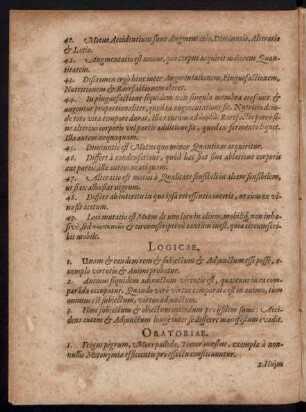 41. Motus Accidentium sunt Augmentatio, Diminutio, Alteratio
& Latio.
42. Augmentatio est motus, quo corpus acquirit majorem Quan-
titatem.
43. Discrimen ergò hinc inter Augmentationem, Pinguefactionem,
Nutritionem & Rarefactionem claret.
44. In pinguefactione siquidem non singula membra crescunt &
augentur proportionaliter, quod in augmentatione fit. Nutritio
toto vitæ tempore durat. Rarefactio porro
sit alterius corporis vel partis additione fit, quod ex fermento liquet.
Illa autem nequaquam.
45. Diminutio est Motus quo minor Quantitas acquiritur.
46. Differt à condensatione, quòd hæc fiat sine ablatione corporis
aut partis, illa autem neutiquam.
47. Alteratio est motus à Qualitate sensibili in aliam sensibilem,
ut si ex albo fiat nigrum.
48. Differt ab interitu in quo ipsa rei essentia interit, ut cùm ex vi-
no fit acetum.
49. Loci mutatio est Motus de uno loco in alium, mobili, non inhæ-
sivè, sed & circumscriptivè tantùm inest, quia circumscri-
bit mobile.
LOGICAE.
1. Unum & eundem rem & subjectum & Adjunctum esse posse, e-
xemplo virtutis & Animi probatur.
2. Animi siquidem adjunctum virtus est, quatenus in ea com-
parata occupatur. Quando verò virtus comparata est in animo, tum
animus est subjectum, virtus adjunctum.
3. Hinc subjectum & objectum incidens: Acci-
dens autem & Adjunctum longè inter se differre manifestum evadit.
ORATORIAE.
1. Frigus pigrum, Mors pallida, Timor mæstus, exempla à non-
nullis Metonymiæ efficientis pro effectu constituuntur.
2. Hujus